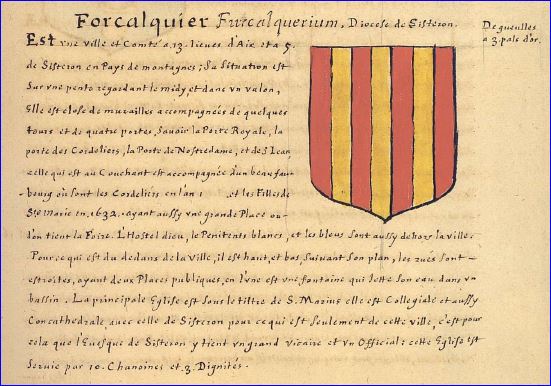 Forcalquier Furcalquerium, Diocese de Sisteron.
De gueulles
a 3. pals d'or.
Est vne ville et Comté a. 13. lieues d'Aix et a 5.
de Sisteron en Pays de montagnes; Sa situation est
sur vne pente regardant le midy et dans vn valon,
Elle est close de murailles accompagnées de quelques
tours et de quatre portes, Sçavoir la Porte Royale, la
porte des Cordeliers, la Porte de Nostredame, et de S.t Jean
celle qui est au Couchant est accompagnée d'un beau faux-
bourg où sont les Cordeliers en l'an 1 et les Filles de
Ste Marie en 1632. ayant aussy vne grande Place ou-
l'on tient la Foire. L'Hostel dieu, le Penitents blancs, et les bleus sont aussy dehors la ville.
Pour ce qui est du dedans de la Ville, il est haut, et bas, suivant son plan, les rues sont
estroites, ayant deux Places publiques, en l'vne est vne fontaine qui iette son eau dans vn
bassin. La principale Eglise est sous le tiltre de S. Marius elle est Collegiale et aussy
Concathedrale, avec celle de Sisteron pour ce qui est seulement de cette ville, c'est pour
cela que l'Euesque de Sisteron y tient vn grand vicaire et vn Official: cette Eglise est
Servie par 10. Chanoines et 3. Dignités.